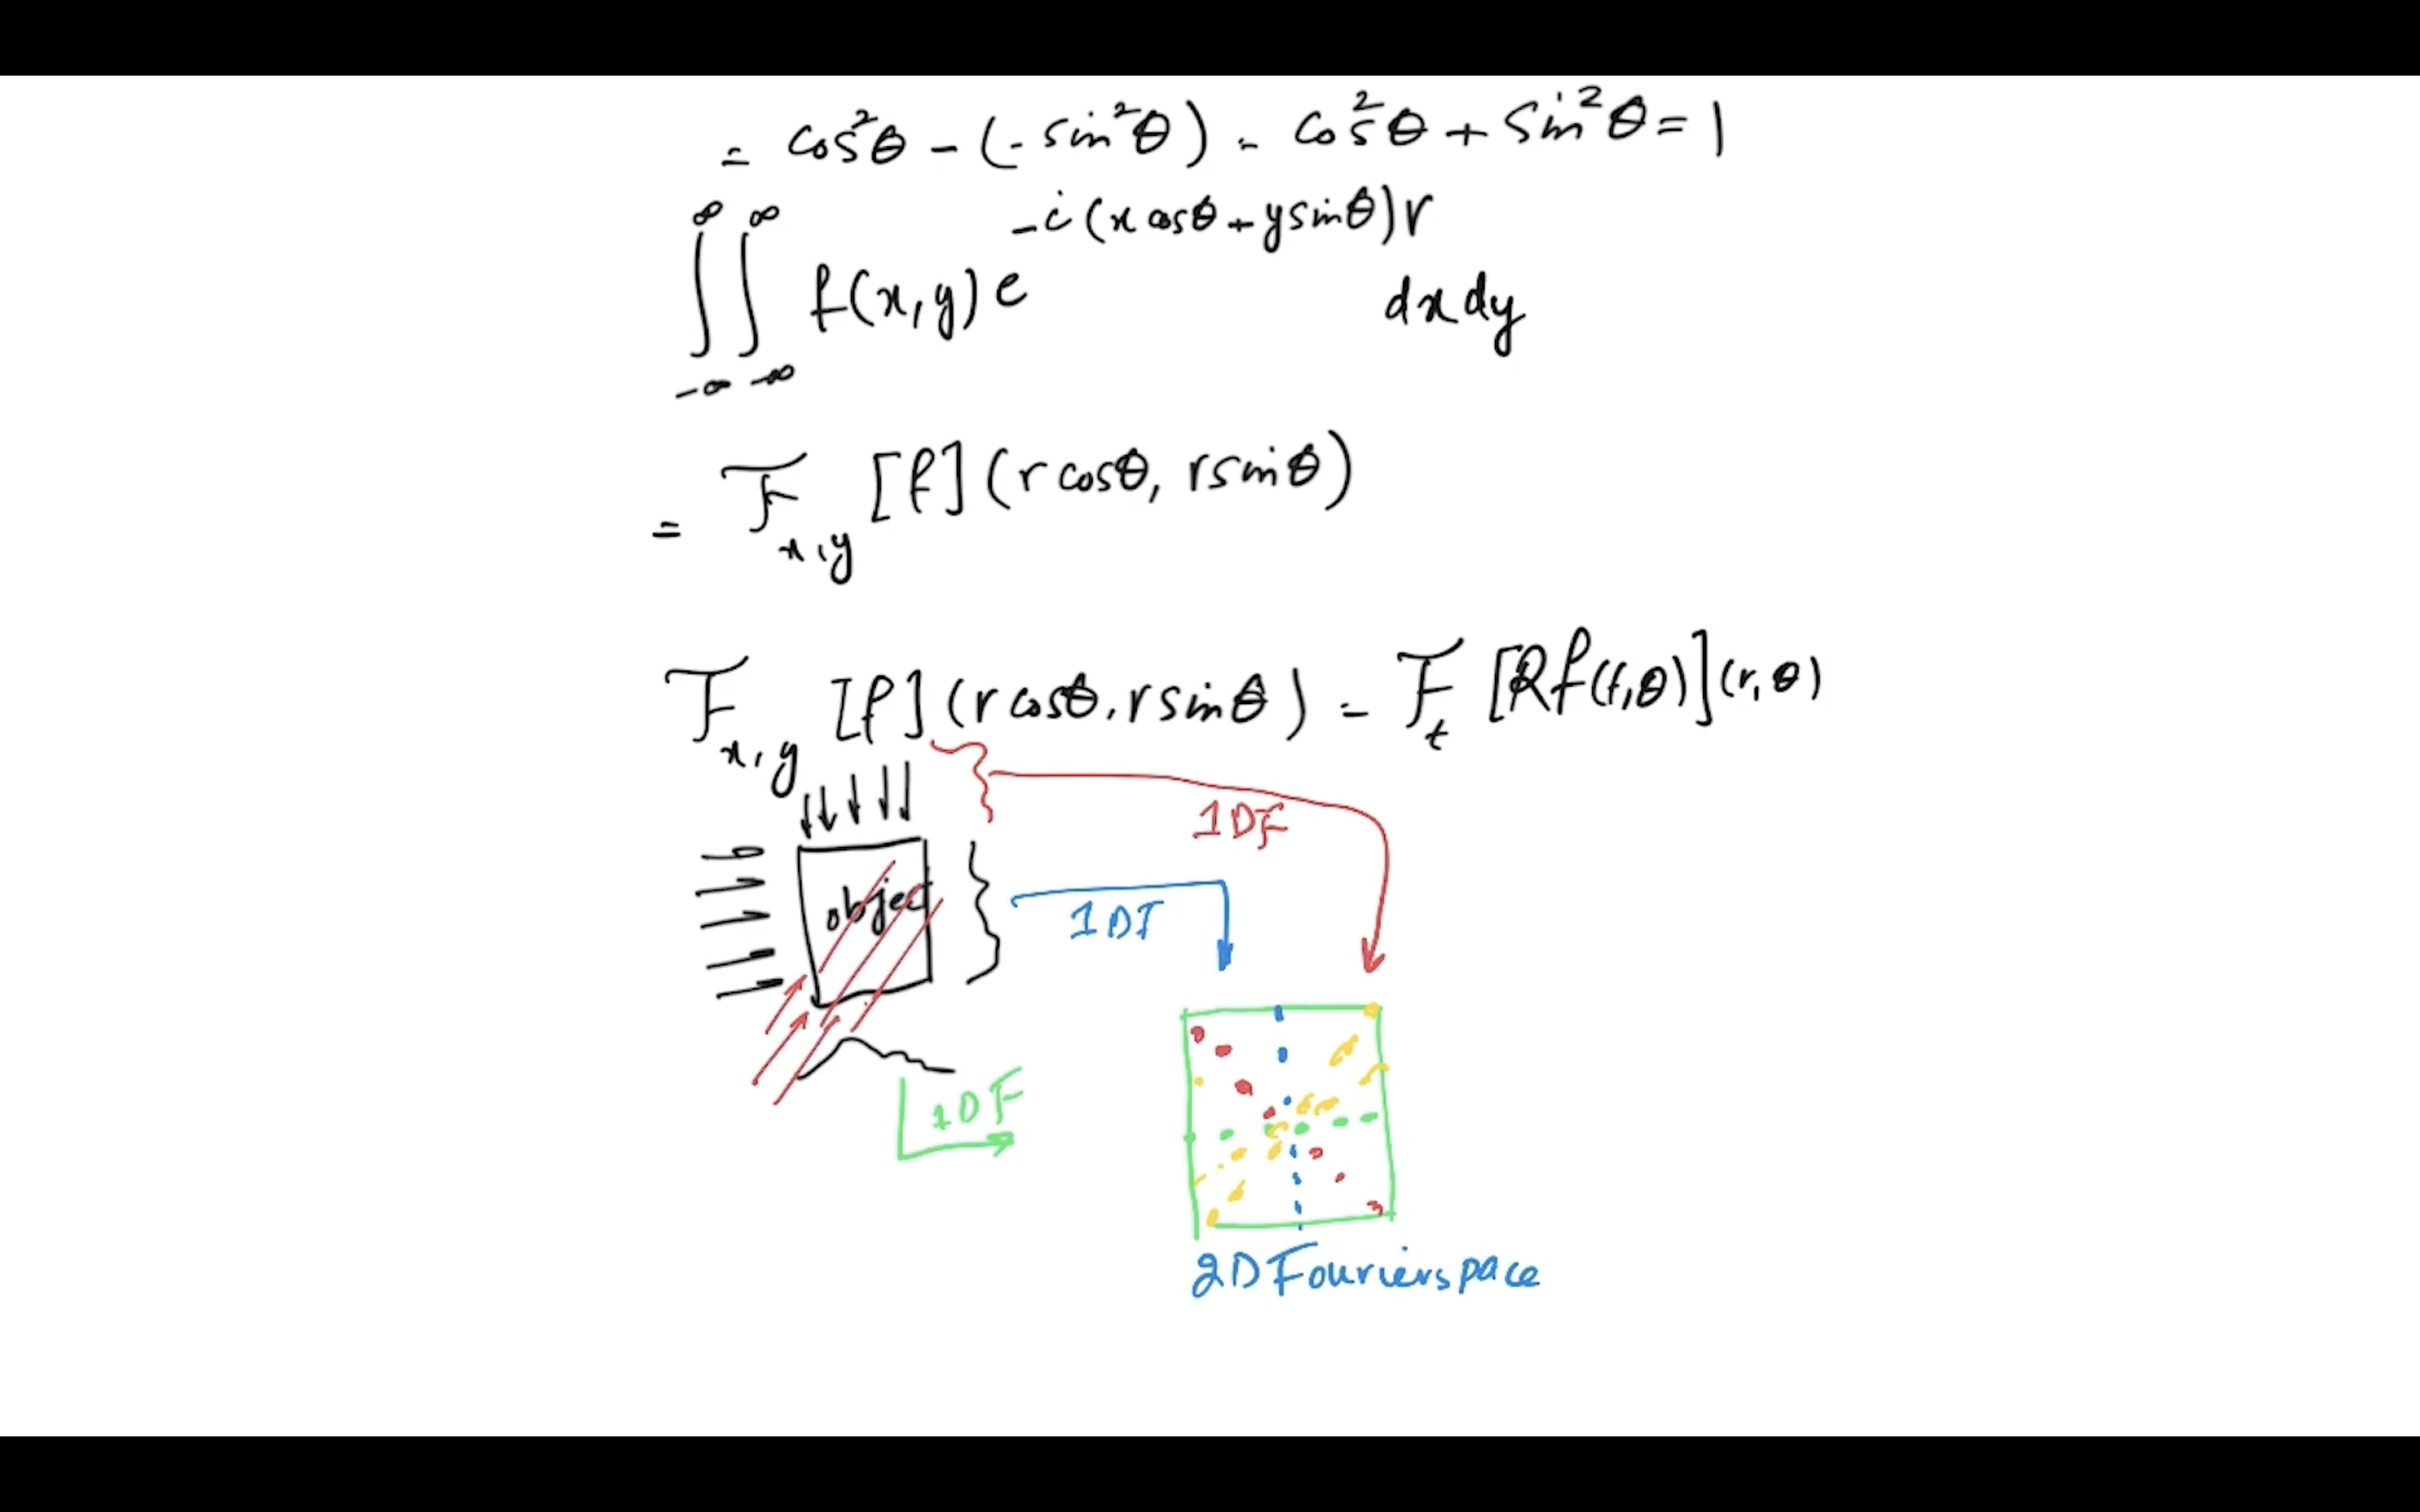 = cos²θ - (- sin²θ) = cos²θ + sin²θ = 1
∫_{-∞}^{∞} ∫_{-∞}^{∞} f(x,y) e^{-i(x cosθ + y sinθ)r} dx dy
= F_{x,y} [f] (r cosθ, r sinθ)
F_{x,y} [f] (r cosθ, r sinθ) = F_t [Rf(t,θ)] (r,θ)
1DF
object
1DF
1DF
2D Fourier space